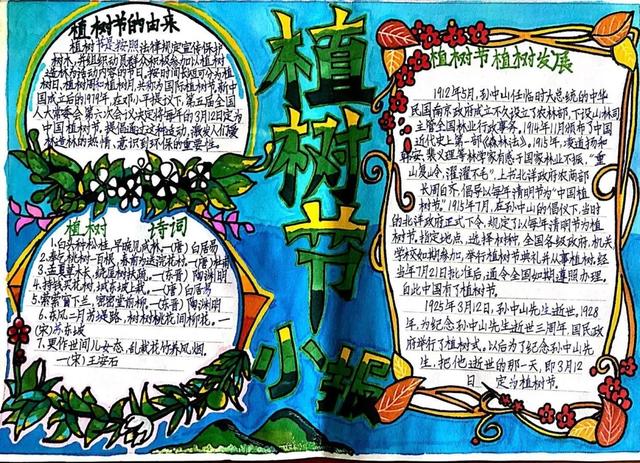 植树节的由来
植树节是按照法律规定宣传保护
树木,并组织动员群众积极参加以植树
造林为活动内容的节日。按时间长短可分为植
树日、植树周和植树月,共称为国际植树节。新中
国成立后的1979年,在邓小平提议下,第五届全国
人大常委会第六次会议决定将每年的3月12日定为
中国植树节。提倡通过这种活动,激发人们爱
林造林的热情、意识到环保的重要性。
植树 诗词
1.白头种松桂,早晚见成林。—(唐)白居易
2.奉乞桃栽一百根,春前为送浣花村。—(唐)杜甫
3.孟夏草木长,绕屋树扶疏。—(东晋)陶渊明
4.持钱买花树,城东坡上栽。—(唐)白居易
5.荣荣窗下兰,密密堂前柳。—(东晋)陶渊明
6.东风二月苏堤路,树树桃花间柳花。—
(宋)苏东坡
7.要作世间儿女态,乱栽花竹养风烟。
—(宋)王安石
植树节
小报
植树节植树发展
1912年5月,孙中山任临时大总统的中华
民国南京政府成立不久设立了农林部,下设山林司
主管全国林业行政事务,1914年11月颁布了中国
近代史上第一部《森林法》。1915年,凌道扬和
韩安、裴义理等林学家有感于国家林业不振,“重
山复岭,濯濯不毛”,上书北洋政府农商部
长周自齐,倡导以每年清明节为“中国植
树节。”1915年7月,在孙中山的倡仪下,当时
的北洋政府正式下令,规定了以每年清明节为植
树节,指定地点,选择树种,全国各级政府,机关
学校如期参加,举行植树节典礼并从事植树,经
当年7月21日批准后,通令全国如期遵照办理。
自此中国有了植树节。
1925年3月12日,孙中山先生逝世,1928
年,为纪念孙中山先生逝世三周年,国民政
府举行了植树式。以后为了纪念孙中山先
生,把他逝世的那一天,即3月12
日 定为植树节。